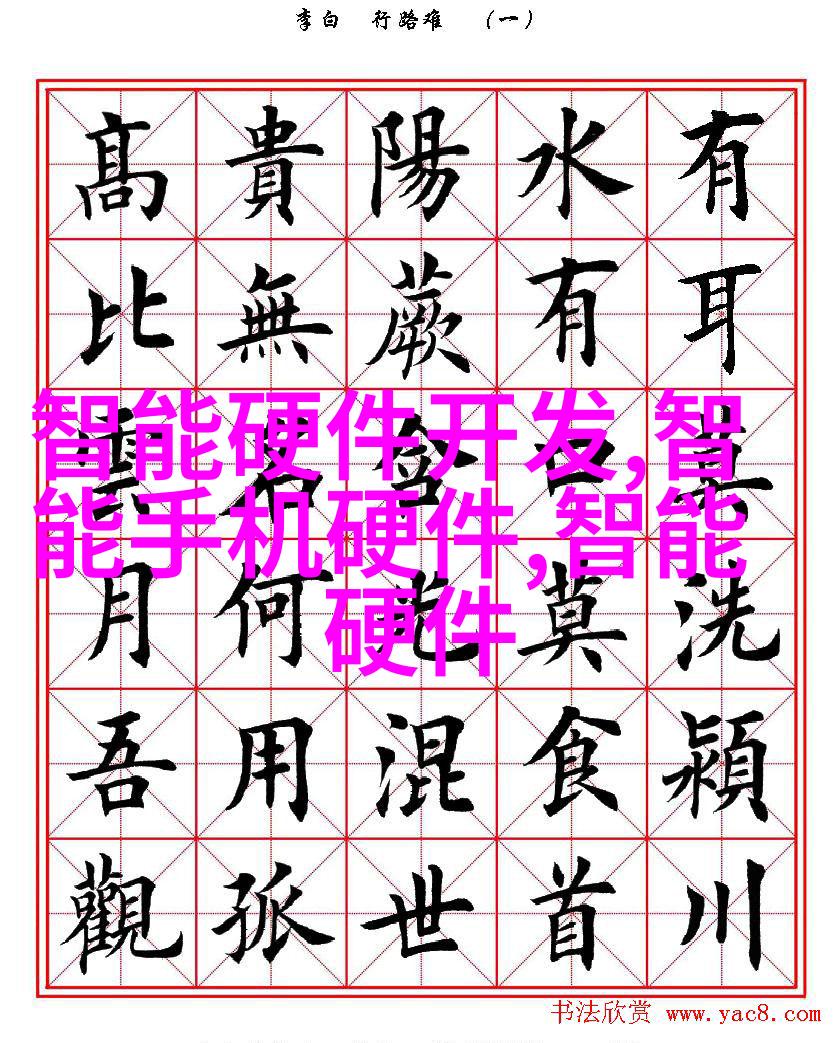 李白 行路难 （一）
有耳莫洗潁川
水有口莫食首
陽蕨含光混世
貴無名何用孤
髙比雲月吾觀
智能硬件开发,智
能手机硬件,智能
硬件
书法欣赏 www.yac8.com